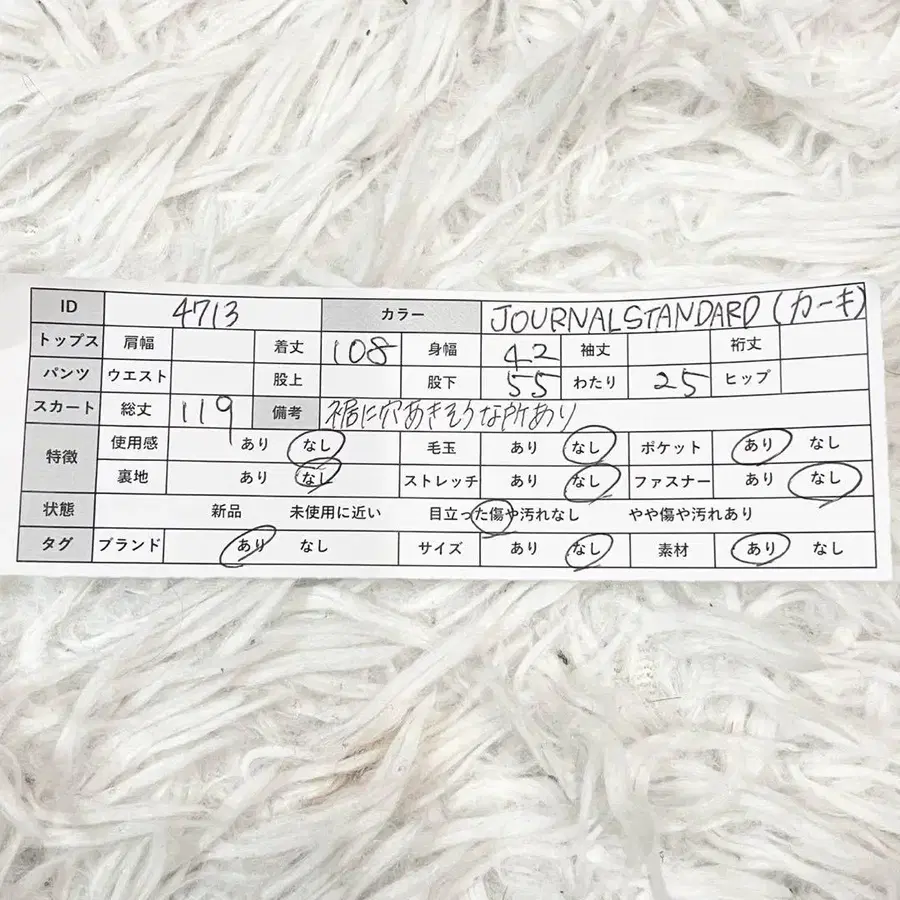 ID 4713 カラー JOURNALSTANDARD(カーキ)
トップス 肩幅 着丈 108 身幅 42 袖丈 裄丈
パンツ ウエスト 股上 股下 55 わたり 25 ヒップ
スカート 総丈 119 備考 裾に穴あきそうな所あり
特徴 使用感 あり なし 毛玉 あり なし ポケット あり なし
裏地 あり なし ストレッチ あり なし ファスナー あり なし
状態 新品 未使用に近い 目立った傷や汚れなし やや傷や汚れあり
タグ ブランド あり なし サイズ あり なし 素材 あり なし